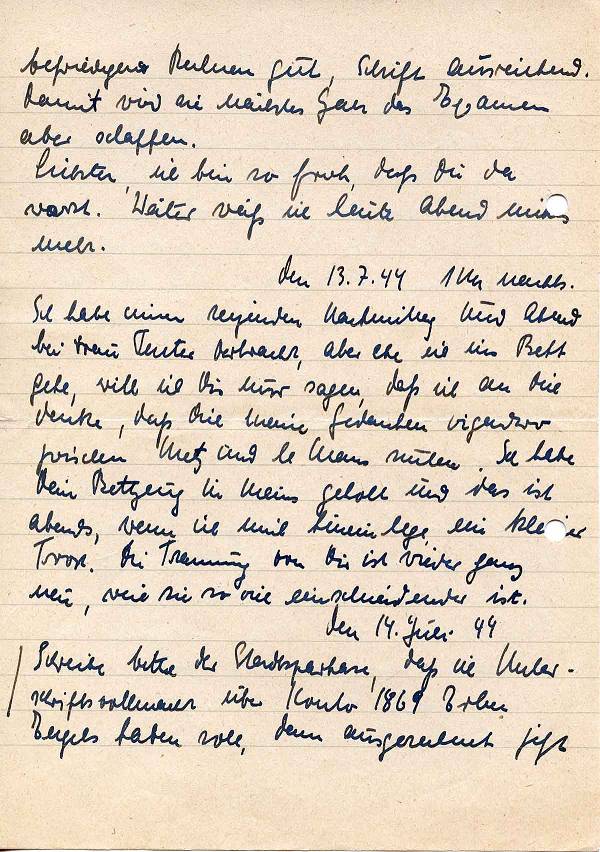 befriedigend Rechnen gut, Schrift ausreichend.
Damit wird sie nächstes Jahr das Examen
aber schaffen.
Liebster, ich bin so froh, daß Du da
warst. Weiter weiß ich heute Abend nichts
mehr.
den 13.7.44 1 Uhr nachts.
Ich habe einen reizenden Nachmittag und Abend
bei Frau verbracht, aber ehe ich ins Bett
gehe, will ich Dir nur sagen, daß ich an Dich
denke, daß Dich meine Gedanken irgendwo
zwischen Metz und le Mans suchen. Ich habe
Dein Bettzeug in meins geholt und das ist
abends, wenn ich mich hineinlege, ein kleiner
Trost. Die Trennung von Dir ist wieder ganz
neu, weil sie so viel einschneidender ist.
den 14. Juli 44
Schreibe bitte der Stadtsparkasse, daß ich Unter-
schriftsvollmacht über Konto 1869 Erben
haben soll, denn ausgerechnet jetzt